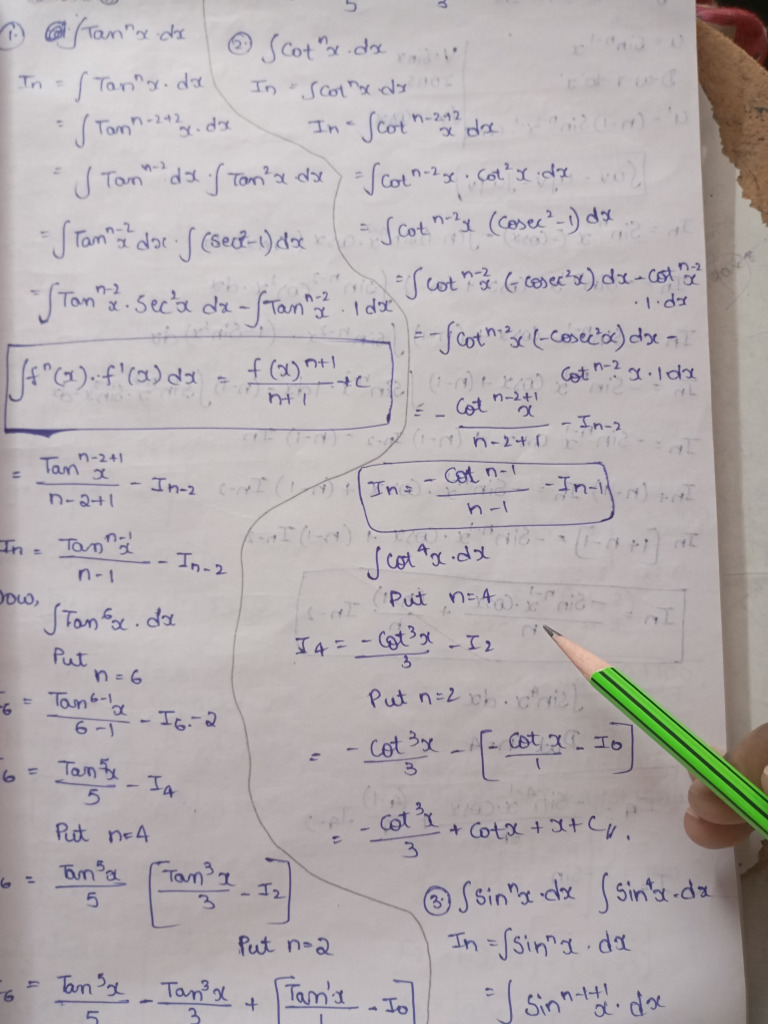 1. ∫Tanⁿx·dx
In = ∫Tanⁿx·dx
= ∫Tanⁿ⁻²⁺²x·dx
= ∫Tanⁿ⁻²dx·∫Tan²x dx
= ∫Tanⁿ⁻²x dx·∫(sec²-1)dx
= ∫Tanⁿ⁻²x·Sec²x dx - ∫Tanⁿ⁻²x·1dx
∫fⁿ(x)·f'(x)dx = f(x)ⁿ⁺¹/n+1 + c
= Tanⁿ⁻²⁺¹x/n-2+1 - In-2
In = Tanⁿ⁻¹x/n-1 - In-2
Now,
∫Tan⁶x·dx
Put
n=6
6 = Tan⁶⁻¹x/6-1 - I6-2
6 = Tan⁵x/5 - I4
Put n=4
6 = Tan⁵x/5 [Tan³x/3 - I2]
Put n=2
6 = Tan⁵x/5 - Tan³x/3 + [Tan'x/1 - I0]
2. ∫Cotⁿx·dx
In = ∫Cotⁿx·dx
In = ∫Cotⁿ⁻²⁺²x dx
= ∫Cotⁿ⁻²x·Cot²x·dx
= ∫Cotⁿ⁻²x (Cosec²-1)dx
= ∫Cotⁿ⁻²x·(-Cosec²x)dx - Cotⁿ⁻²x
·1·dx
= -∫Cotⁿ⁻²x(-Cosec²x)dx -
Cotⁿ⁻²x·1dx
= -Cotⁿ⁻²⁺¹x/n-2+1 - In-2
In = -Cot n-1/n-1 - In-1
∫Cot⁴x·dx
Put n=4
I4 = -Cot³x/3 - I2
Put n=2
= -Cot³x/3 - [-Cot x/1 - I0]
= -Cot³x/3 + Cotx + x + C//.
3. ∫Sinⁿx·dx ∫Sin⁴x·dx
In = ∫Sinⁿx·dx
= ∫Sinⁿ⁻¹⁺¹x·dx